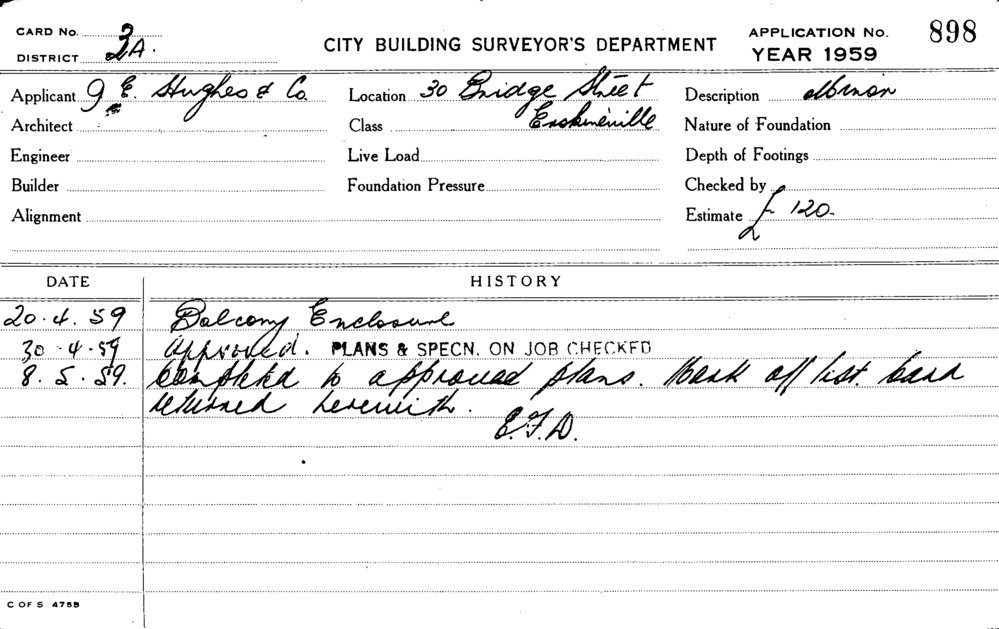 CARD No.
DISTRICT 2A.
CITY BUILDING SURVEYOR'S DEPARTMENT
APPLICATION No. 898
YEAR 1959
Applicant E. Hughes & Co. Location 30 Bridge Street Description Minor
Architect Class Erskineville Nature of Foundation
Engineer Live Load Depth of Footings
Builder Foundation Pressure Checked by
Alignment Estimate £ 120.
DATE HISTORY
20.4.59 Balcony Enclosure
30.4.59 Approved. PLANS & SPECN. ON JOB CHECKED
8.5.59. Completed to approved plans. Mark off list. Card
returned herewith.
E.F.D.
C OF S 4755